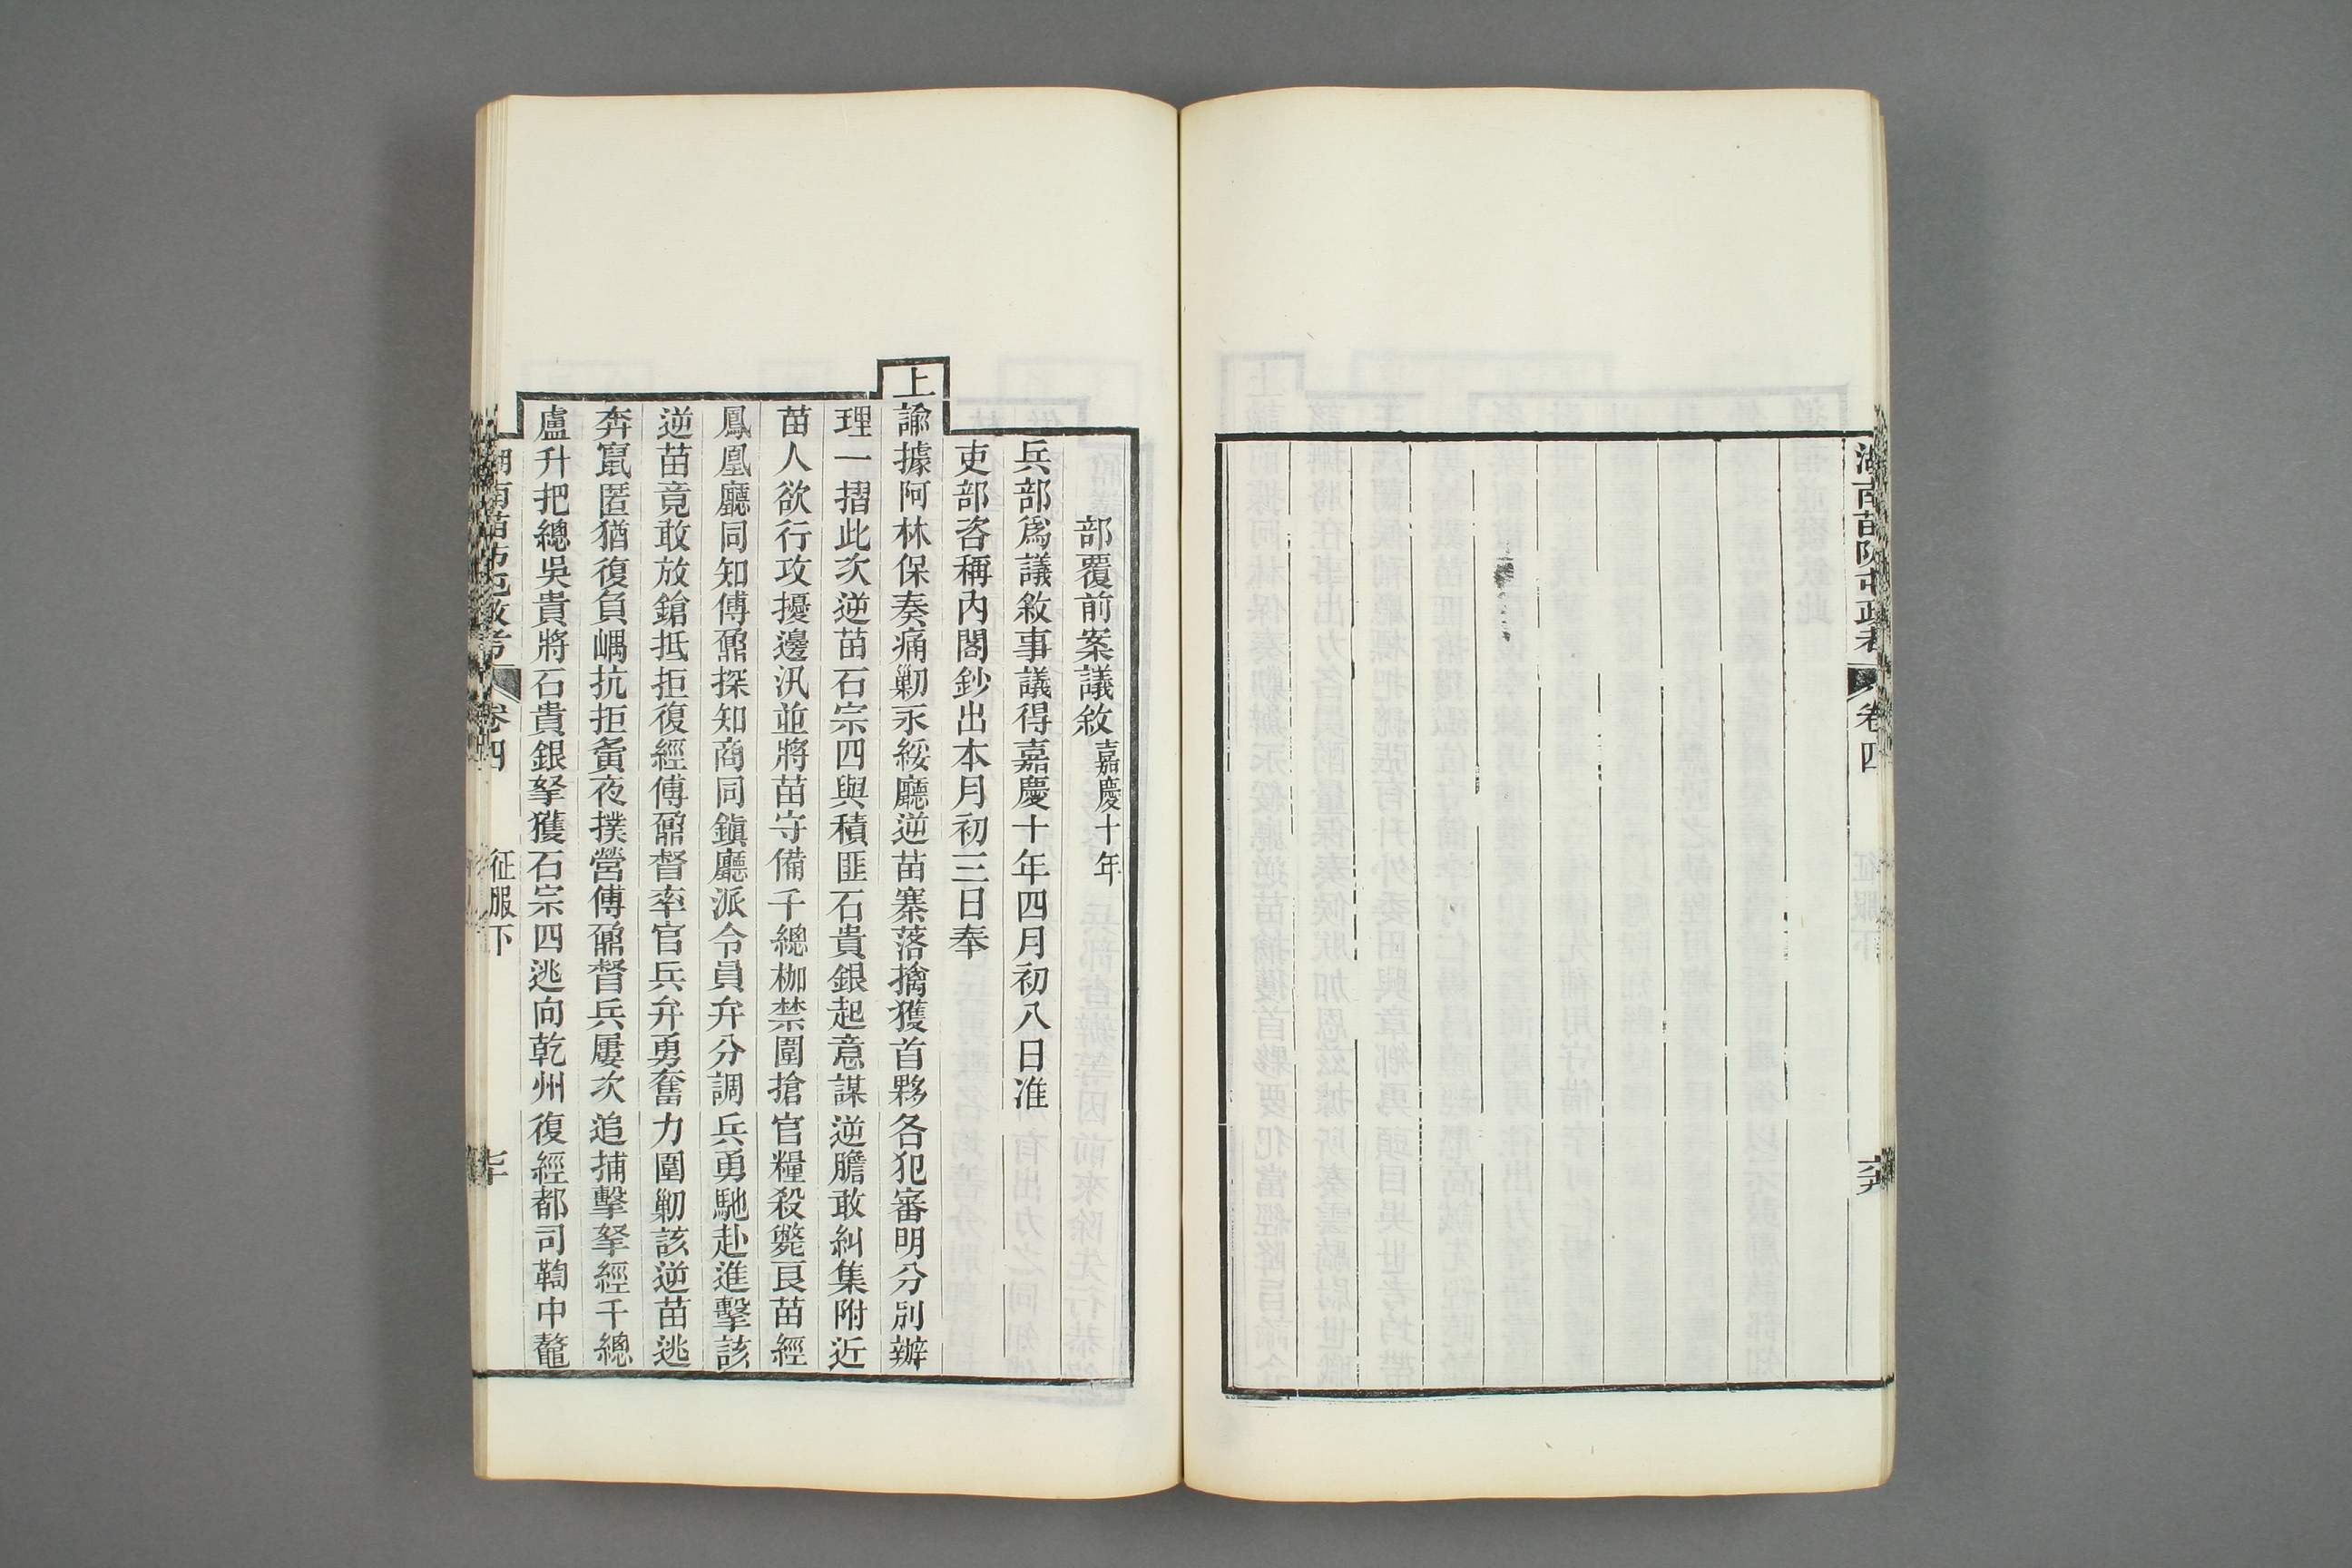 湖南苗防屯政考
卷四
部覆前案議敘嘉慶十年
兵部爲議敘事議得嘉慶十年四月初八日准
吏部咨稱内閣鈔出本月初三日奉
上諭據阿林保奏痛勦永綏廳逆苗寨落擒獲首夥各犯審明分別辦
理一摺此次逆苗石宗四與積匪石貴銀起意謀逆膽敢糾集附近
苗人欲行攻擾邊汛並將苗守備千總枷禁圍搶官糧殺斃良苗經
鳳凰廳同知傅鼐探知商同鎭廳派令員弁分調兵勇馳赴進擊該
逆苗竟敢放鎗抵拒復經傅鼐督率官兵弁勇奮力圍勦該逆苗逃
奔竄匿猶復負嵎抗拒夤夜撲營傅鼐督兵屢次追捕擊拏經千總
盧升把總吳貴將石貴銀拏獲石宗四逃向乾州復經都司鞫中鼇
湖南苗防屯政考
卷四
征服下